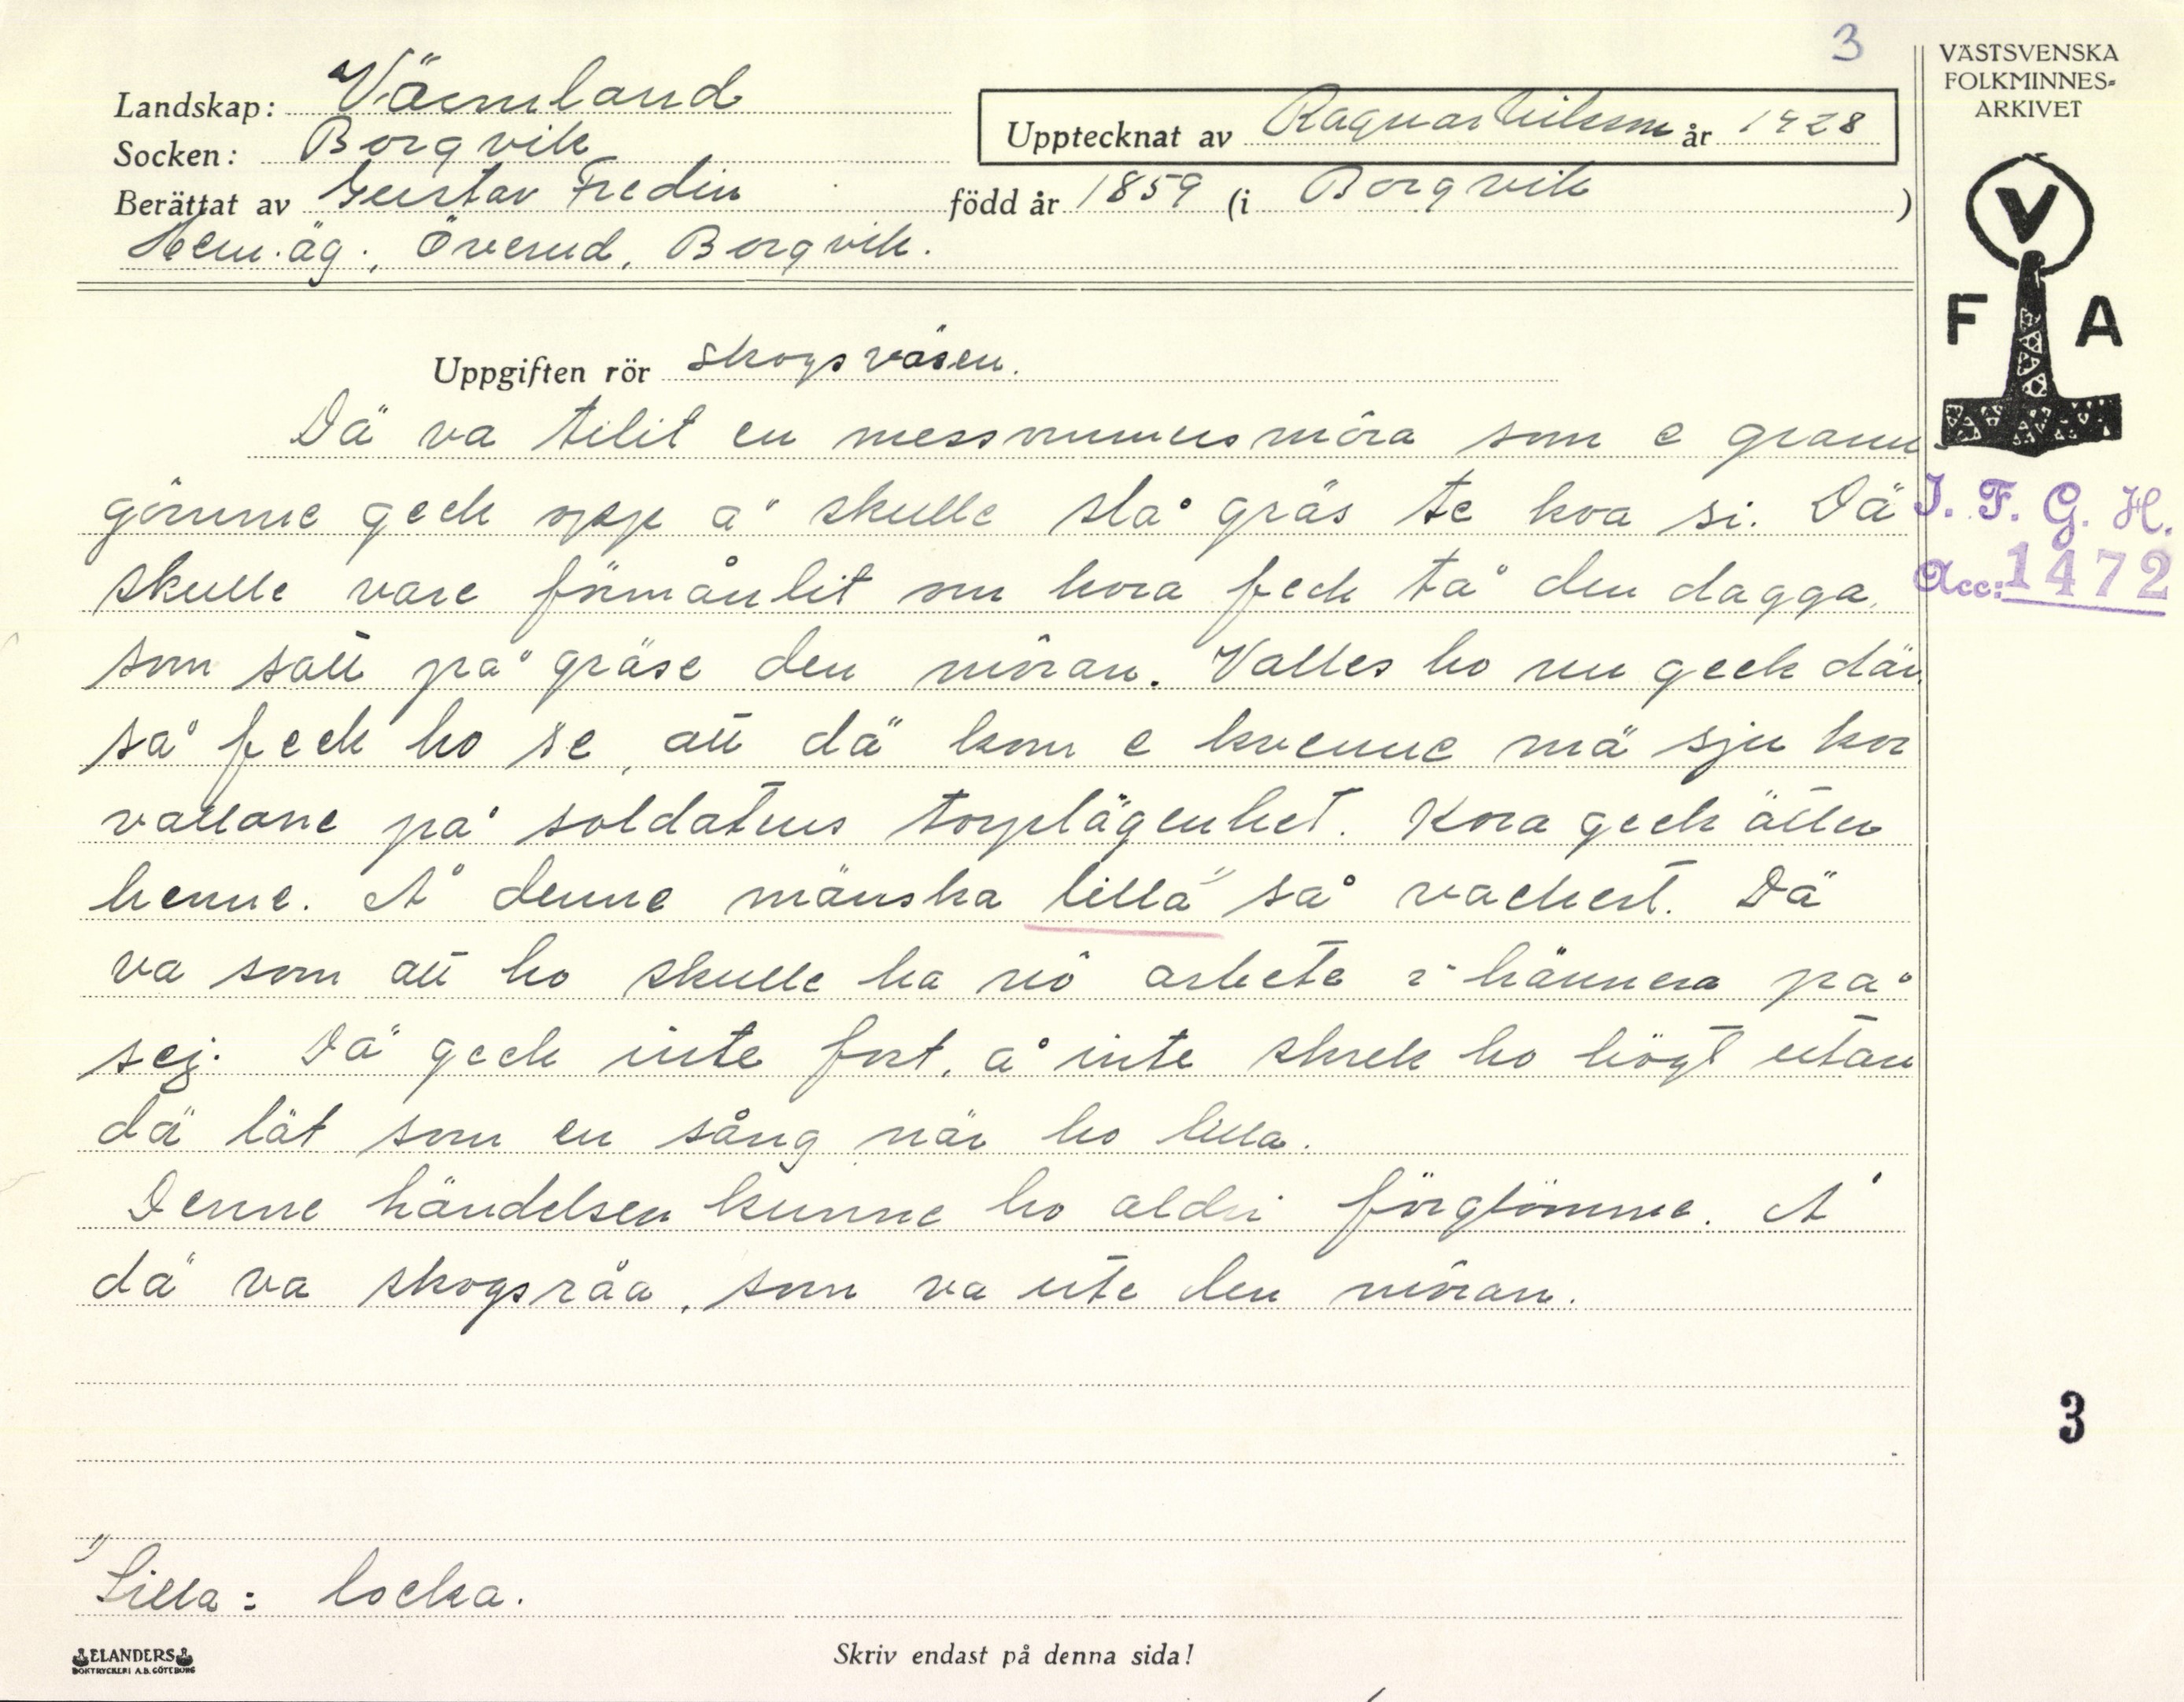 3
VÄSTSVENSKA
FOLKMINNES-
ARKIVET
Landskap: Värmland
Upptecknat av Ragnar Nilsson år 1928
Socken: Borgvik
Berättat av Gustav Fredin född år 1859 (i Borgvik )
Hem.äg., Överud, Borgvik.
V
F A
Uppgiften rör skogsväsen.
Dä va tilit en messommersmôra som e grann
gômme geck opp å skulle slå gräs te koa si. Dä
skulle vare förmånlit om kora feck ta den dagga,
som satt på gräse den môran. Valles ho nu geck där
så feck ho se, att dä kom e kvenne mä sju kor
vallane på soldatens torplägenhet. Kora geck ätter
henne. Å denne mänska lilla 1) så vackert. Dä
va som att ho skulle ha nô arbete i hännera på
sej. Dä geck inte fort, å inte skrek ho högt utan
dä lät som en sång när ho lilla.
Denne händelsen kunne ho aldri förglömme. Å
dä va skogsråa, som va ute den môran.
I. F. G. H.
Acc: 1472
3
1) Lilla: locka.
ELANDERS
BOKTRYCKERI A.B. GÖTEBORG
Skriv endast på denna sida!